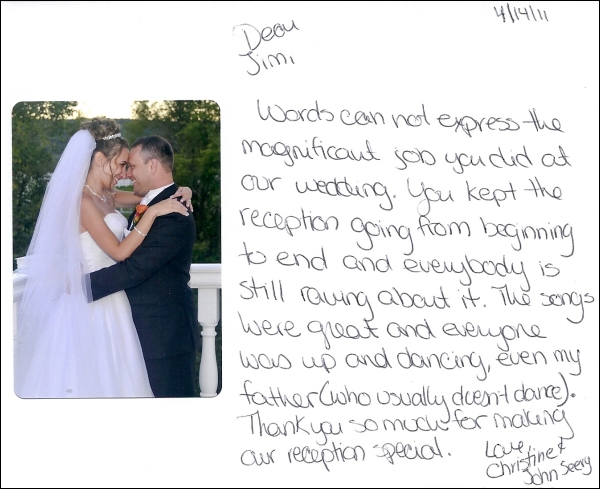 4/14/11
Dear
Jim,
Words can not express the
magnificant job you did at
our wedding. You kept the
reception going from beginning
to end and everybody is
still raving about it. The songs
were great and everyone
was up and dancing, even my
father (who usually doesn't dance).
Thank you so much for making
our reception special.
Love,
Christine &
John Seery